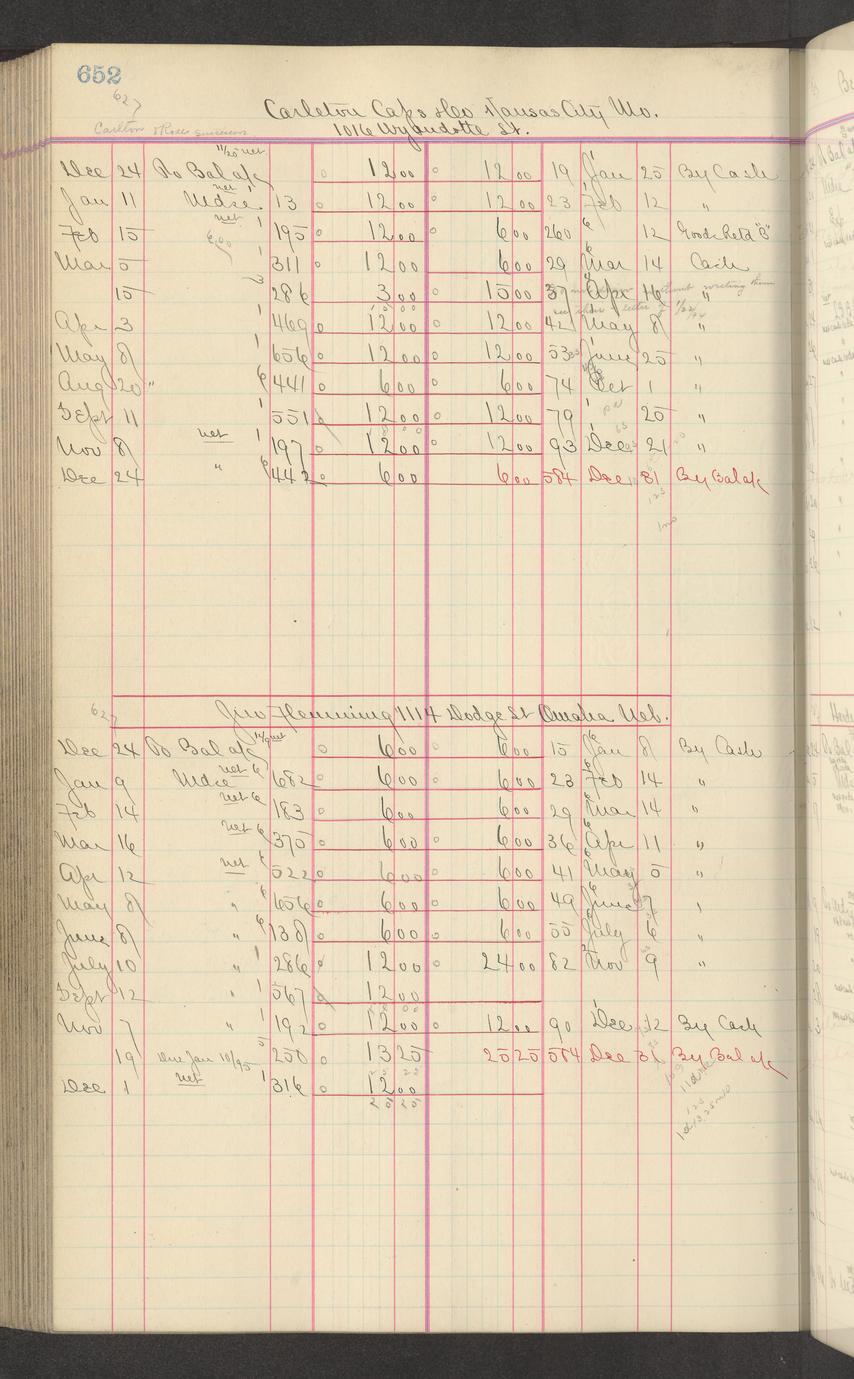 652
627
Carleton Caps & Co Kansas City Mo.
Carlton & Rose successors
1016 Wyandotte St.
11/25 net
Dec 24 To Bal a/c 12 00 12 00 19 Jan 25 By Cash
Jan 11 Mdse. net 13 12 00 12 00 23 Feb 12 "
Feb 15 net 1 195 12 00 6 00 260 12 Goods Retd "B"
Mar 5 1 311 12 00 6 00 29 Mar 14 Cash
15 3 286 3 00 15 00 37 Apr 16 "
Apr 3 1 469 12 00 12 00 42 May 8 "
May 8 1 656 12 00 12 00 53 June 25 "
Aug 20 " 6 441 6 00 6 00 74 Oct 1 "
Sept 11 1 551 12 00 12 00 79 25 "
Nov 8 net 1 197 12 00 12 00 93 Dec 21 "
Dec 24 " 6 442 6 00 6 00 584 Dec 31 By Bal a/c
627
Jno Flemming 1114 Dodge St Omaha Neb.
Dec 24 To Bal a/c net 6 00 6 00 15 Jan 8 By Cash
Jan 9 Mdse net 6 682 6 00 6 00 23 Feb 14 "
Feb 14 net 6 183 6 00 6 00 29 Mar 14 "
Mar 16 net 6 375 6 00 6 00 36 Apr 11 "
Apr 12 net 6 522 6 00 6 00 41 May 5 "
May 8 " 6 656 6 00 6 00 49 June 7 "
June 8 " 6 138 6 00 6 00 55 July 6 "
July 10 " 1 286 12 00 24 00 82 Nov 9 "
Sept 12 " 1 567 12 00
Nov 7 " 1 192 12 00 12 00 90 Dec 12 By Cash
19 Due Jan 10/95 5 250 13 25 25 25 584 Dec 31 By Bal a/c
Dec 1 net 1 316 12 00
25 25